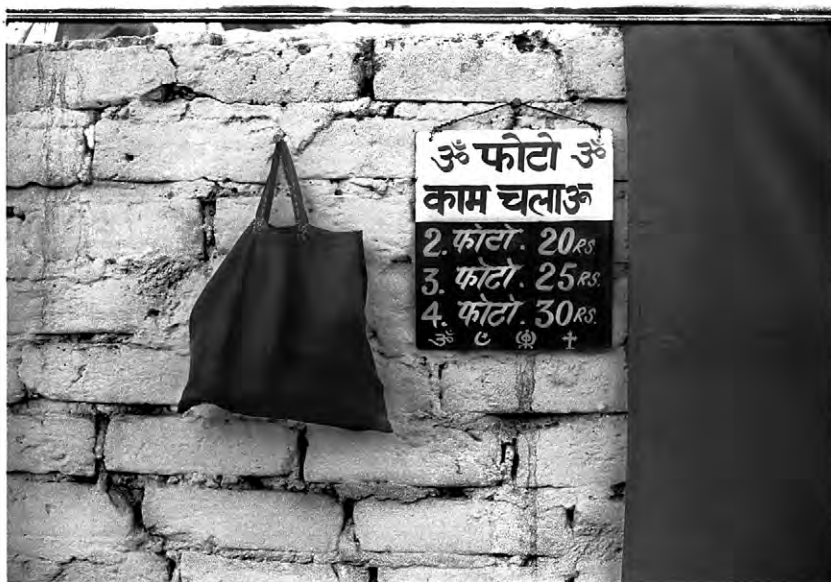 ॐ फोटो ॐ
काम चलाऊ
2. फोटो. 20 RS.
3. फोटो. 25 RS.
4. फोटो. 30 RS.
ॐ ☪ ☬ ✝